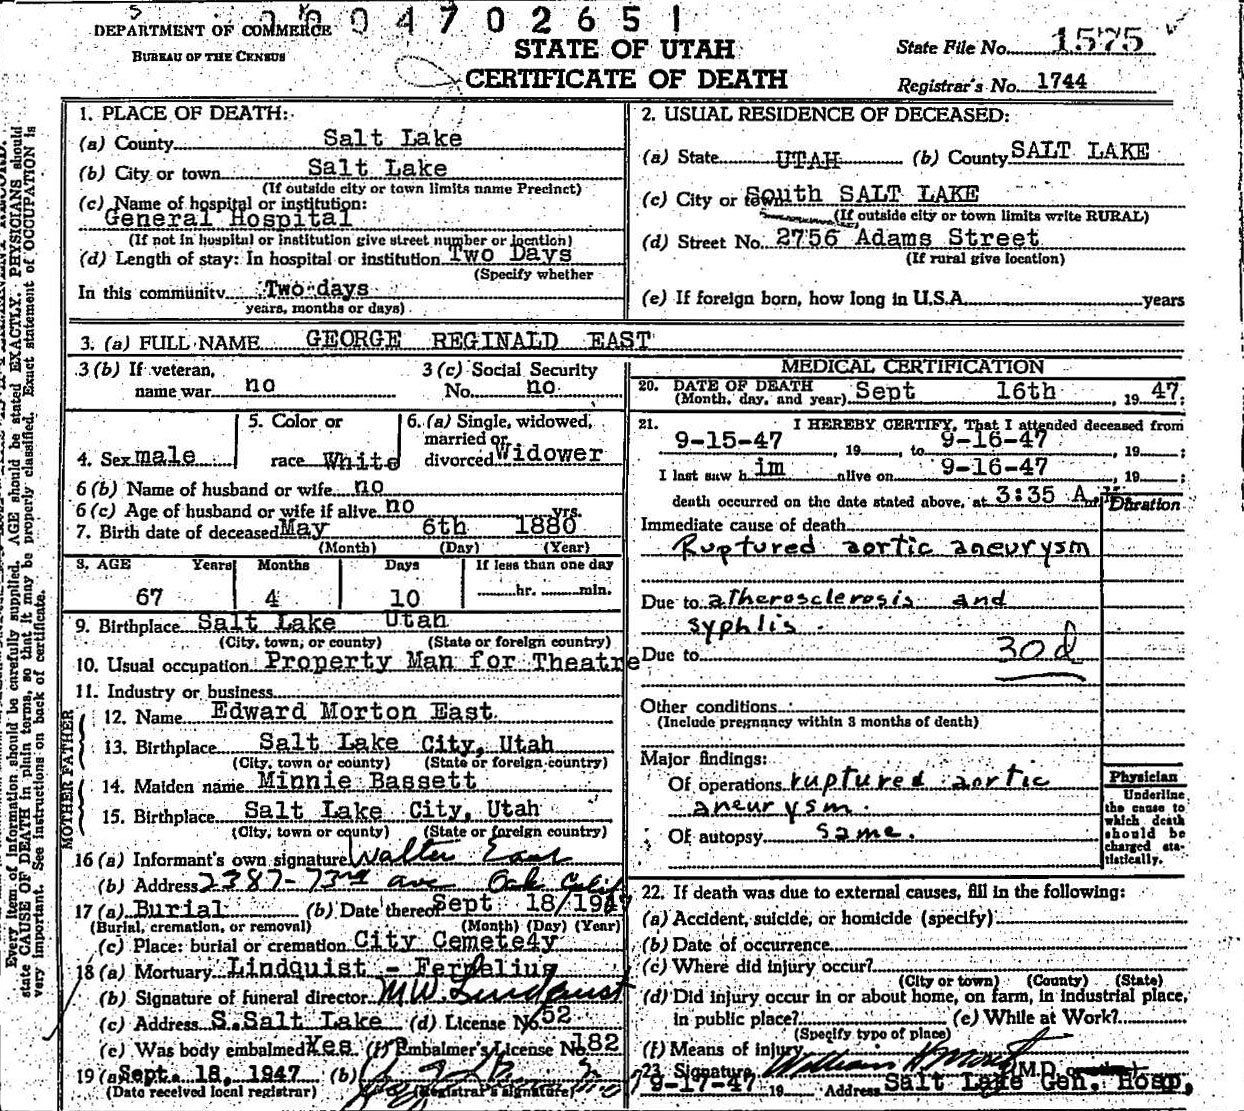 0004702651
DEPARTMENT OF COMMERCE
BUREAU OF THE CENSUS
STATE OF UTAH
CERTIFICATE OF DEATH
State File No. 1575
Registrar's No. 1744
Every item of information should be carefully supplied. AGE should be stated EXACTLY. PHYSICIANS should
state CAUSE OF DEATH in plain terms, so that it may be properly classified. Exact statement of OCCUPATION is
very important. See instructions on back of certificate.
1. PLACE OF DEATH:
(a) County Salt Lake
(b) City or town Salt Lake
(If outside city or town limits name Precinct)
(c) Name of hospital or institution:
General Hospital
(If not in hospital or institution give street number or location)
(d) Length of stay: In hospital or institution Two Days
(Specify whether
In this community Two days
years, months or days)
2. USUAL RESIDENCE OF DECEASED:
(a) State UTAH (b) County SALT LAKE
(c) City or town South SALT LAKE
(If outside city or town limits write RURAL)
(d) Street No. 2756 Adams Street
(If rural give location)
(e) If foreign born, how long in U.S.A. years
3. (a) FULL NAME GEORGE REGINALD EAST
3 (b) If veteran, name war no
3 (c) Social Security No. no
4. Sex male
5. Color or race White
6. (a) Single, widowed, married or divorced Widower
6 (b) Name of husband or wife no
6 (c) Age of husband or wife if alive no yrs.
7. Birth date of deceased May 6th 1880
(Month) (Day) (Year)
8. AGE Years Months Days If less than one day
67 4 10 hr. min.
9. Birthplace Salt Lake Utah
(City, town, or county) (State or foreign country)
10. Usual occupation Property Man for Theatre
11. Industry or business
FATHER
12. Name Edward Morton East
13. Birthplace Salt Lake City, Utah
(City, town or county) (State or foreign country)
MOTHER
14. Maiden name Minnie Bassett
15. Birthplace Salt Lake City, Utah
(City, town or county) (State or foreign country)
16 (a) Informant's own signature Walter East
(b) Address 2387-73rd ave Oak Calif
17 (a) Burial (b) Date thereof Sept 18/1947
(Burial, cremation, or removal) (Month) (Day) (Year)
(c) Place: burial or cremation City Cemete4y
18 (a) Mortuary Lindquist - Fernelius
(b) Signature of funeral director M.W. Lindquist
(c) Address S. Salt Lake (d) License No. 52
(e) Was body embalmed Yes (f) Embalmer's License No. 182
19 (a) Sept. 18, 1947 (b)
(Date received local registrar) (Registrar's signature)
MEDICAL CERTIFICATION
20. DATE OF DEATH
(Month, day, and year) Sept 16th, 19 47;
21. I HEREBY CERTIFY, That I attended deceased from
9-15-47, 19 , to 9-16-47, 19 ;
I last saw him alive on 9-16-47, 19 ;
death occurred on the date stated above, at 3:35 A.M.
Duration
Immediate cause of death
Ruptured aortic aneurysm
Due to atherosclerosis and
syphlis.
Due to 30d
Other conditions
(Include pregnancy within 3 months of death)
Major findings:
Of operations ruptured aortic
aneurysm.
Of autopsy same.
Physician
Underline
the cause to
which death
should be
charged sta-
tistically.
22. If death was due to external causes, fill in the following:
(a) Accident, suicide, or homicide (specify)
(b) Date of occurrence
(c) Where did injury occur?
(City or town) (County) (State)
(d) Did injury occur in or about home, on farm, in industrial place,
in public place? (e) While at Work?
(Specify type of place)
(f) Means of injury
23. Signature William (M.D. or other)
9-17-47 19 Address Salt Lake Gen. Hosp,